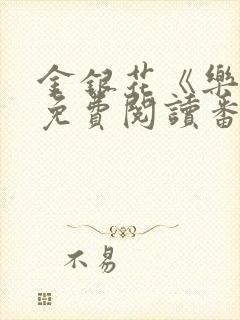 金銀花《樂
免費閱讀番
不易